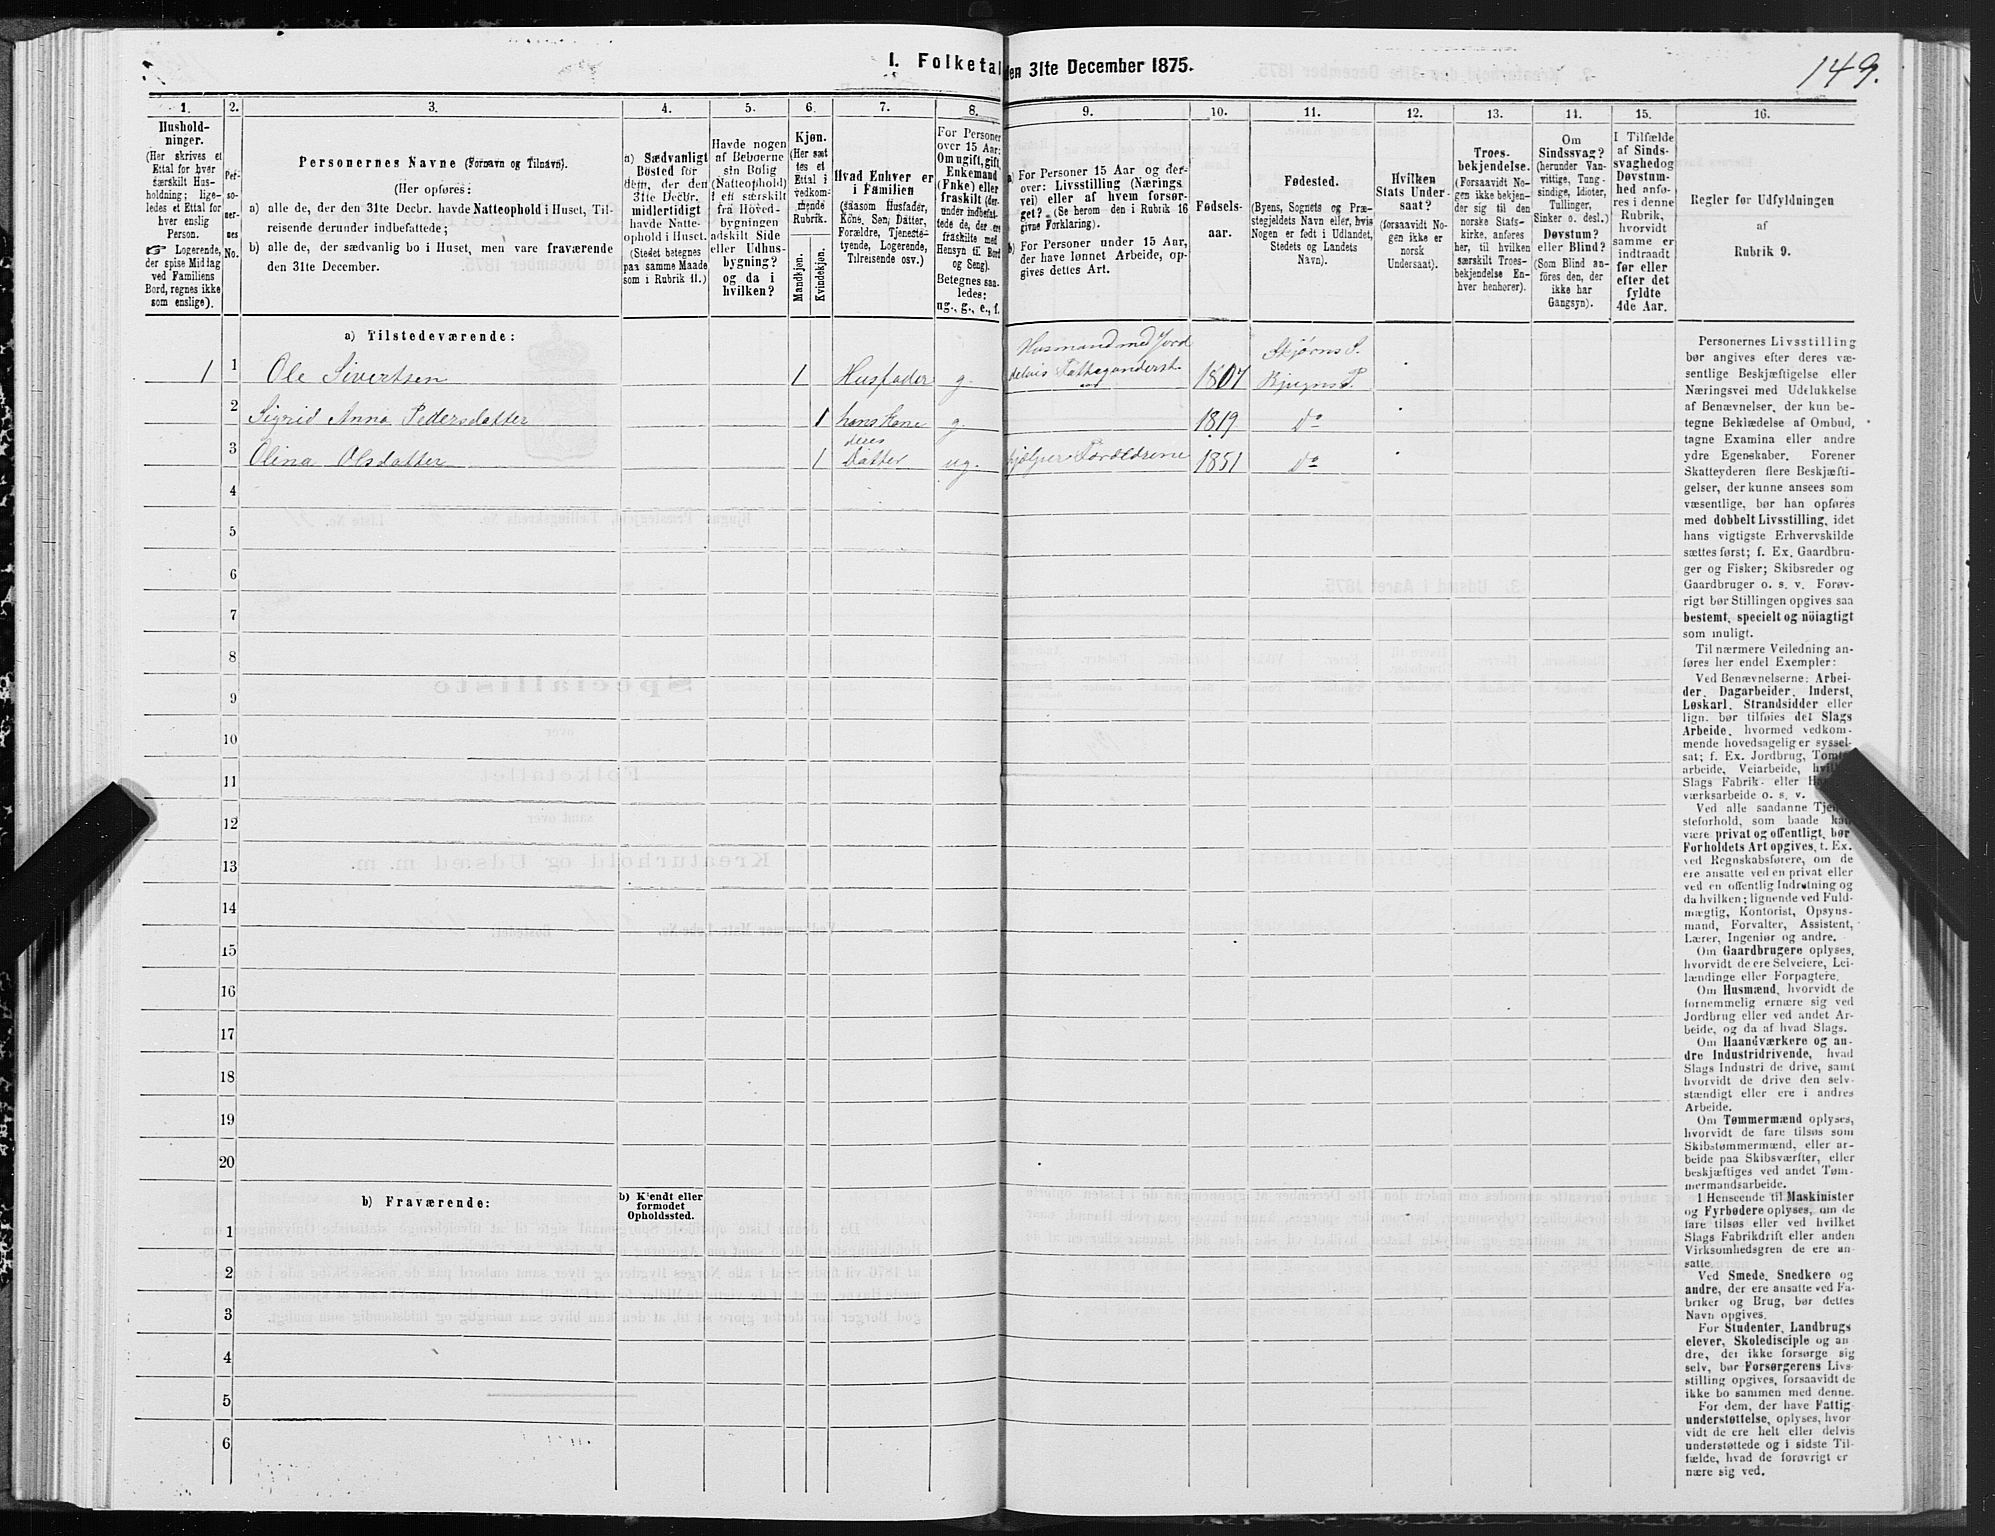 I. Folketal
den 31te December 1875.
149.
1.
2.
3.
4.
5.
6.
7.
8.
9.
10.
11.
12.
13.
14.
15.
16.
Hushold-
ninger.
(Her skrives et
Ettal for hver
særskilt Hus-
holdning; lige-
ledes et Ettal for
hver enslig
Person.
☞ Logerende,
der spise Middag
ved Familiens
Bord, regnes ikke
som enslige).
Per-
so-
ner-
nes
No.
Personernes Navne (Fornavn og Tilnavn).
(Her opføres:
a) alle de, der den 31te Decbr. havde Natteophold i Huset, Til-
reisende derunder indbefattede;
b) alle de, der sædvanlig bo i Huset, men vare fraværende
den 31te December.
a) Sædvanligt
Bosted for
dem, der den
31te Decbr.
midlertidigt
havde Natte-
ophold i Huset.
(Stedet betegnes
paa samme Maade
som i Rubrik 11.)
Havde nogen
af Beboerne
sin Bolig
(Natteophold)
i et særskilt
fra Hoved-
bygningen
adskilt Side
eller Udhus-
bygning?
og da i
hvilken?
Kjøn.
(Her sæt-
tes et
Ettal i
vedkom-
mende
Rubrik.
Mandkjøn.
Kvindekjøn.
Hvad Enhver er
i Familien
(saasom Husfader,
Kone, Søn, Datter,
Forældre, Tjeneste-
tyende, Logerende,
Tilreisende osv.)
For Personer
over 15 Aar:
Om ugift, gift,
Enkemand
(Enke) eller
fraskilt (der-
under indbefat-
tede de, der ere
fraskilte med
Hensyn til Bord
og Seng).
Betegnes saa-
ledes:
ug., g., e., f.
a) For Personer 15 Aar og der-
over: Livsstilling (Nærings-
vei) eller af hvem forsør-
get? (Se herom den i Rubrik 16
givne Forklaring).
b) For Personer under 15 Aar,
der have lønnet Arbeide, op-
gives dettes Art.
Fødsels-
aar.
Fødested.
(Byens, Sognets og Præ-
stegjeldets Navn eller, hvis
Nogen er født i Udlandet,
Stedets og Landets
Navn).
Hvilken
Stats Under-
saat?
(forsaavidt No-
gen ikke er
norsk
Undersaat).
Troes-
bekjendelse.
(Forsaavidt No-
gen ikke bekjen-
der sig til den
norske Stats-
kirke, anføres
her, til hvilken
særskilt Troes-
bekjendelse En-
hver henhører).
Om
Sindssvag?
(herunder Van-
vittige, Tung-
sindige, Idioter,
Tullinger,
Sinker o. desl.)
Døvstum?
eller Blind?
(Som Blind an-
føres den, der
ikke har
Gangsyn).
I Tilfælde
af Sinds-
svaghed og
Døvstum-
hed anfø-
res i denne
Rubrik,
hvorvidt
samme er
indtraadt
før eller
efter det
fyldte
4de Aar.
Regler før Udfyldningen
af
Rubrik 9.
a) Tilstedeværende:
1 1 Ole Sivertsen 1 Husfader g. Husmand med Jord delvis 1807 Skjørns S. Bjugns P.
2 Sigrid Anna Pedersdatter 1 hans Kone g. 1819 Do
3 Olina Olsdatter 1 deres Datter ug. hjælper Forældrene 1851 Do
4
5
6
7
8
9
10
11
12
13
14
15
16
17
18
19
20
b) Fraværende:
b) Kjendt eller
formodet
Opholdssted.
1
2
3
4
5
6
Personernes Livsstilling
bør angives efter deres væ-
sentlige Beskjæftigelse eller
Næringsvei med Udelukkelse
af Benævnelser, der kun be-
tegne Beklædelse af Ombud,
tagne Examina eller andre
ydre Egenskaber. Forener
Skatteyderen flere Beskjæfti-
gelser, der kunne ansees som
væsentlige, bør han opføres
med dobbelt Livsstilling, idet
hans vigtigste Erhvervskilde
sættes først; f. Ex. Gaardbru-
ger og Fisker; Skibsreder og
Gaardbruger o. s. v. Forøv-
rigt bør Stillingen opgives saa
bestemt, specielt og nöiagtigt
som muligt.
Til nærmere Veiledning an-
føres her endel Exempler:
Ved Benævnelserne: Arbei-
der, Dagarbeider, Inderst,
Løskarl, Strandsidder eller
lign. bør tilføies det Slags
Arbeide, hvormed vedkom-
mende hovedsagelig er syssel-
sat; f. Ex. Jordbrug, Tomte-
arbeide, Veiarbeide,
Slags Fabrik- eller
værksarbeide o. s. v.
Ved alle saadanne
steforhold, som baade
være privat og offentligt, bør
Forholdets Art opgives, t. Ex.
ved Regnskabsførere, om de
ere ansatte ved en privat eller
ved en offentlig Indretning og
da hvilken; lignende ved Fuld-
mægtig, Kontorist, Opsyns-
mand, Forvalter, Assistent,
Lærer, Ingeniør og andre.
Om Gaardbrugere oplyses,
hvorvidt de ere Selveiere, Lei-
lændinge eller Forpagtere.
Om Husmænd, hvorvidt de
fornemmelig ernære sig ved
Jordbrug eller ved andet Ar-
beide, og da af hvad Slags.
Om Haandværkere og an-
dre Industridrivende, hvad
Slags Industri de drive, samt
hvorvidt de drive den selv-
stændigt eller ere i andres
Arbeide.
Om Tømmermænd oplyses,
hvorvidt de fare tilsøs som
Skibstømmermænd, eller ar-
beide paa Skibsværfter, eller
beskjæftiges ved andet Tøm-
mermandsarbeide.
I Henseende til Maskinister
og Fyrbødere oplyses, om de
fare tilsøs eller ved hvilket
Slags Fabrikdrift eller anden
Virksomhedsgren de ere an-
satte.
Ved Smede, Snedkere og
andre, der ere ansatte ved Fa-
briker og Brug, bør dettes
Navn opgives.
For Studenter, Landbrugs-
elever, Skoledisciple og an-
dre, der ikke forsørge sig
selv, bør Forsørgerens Livs-
stilling opgives, forsaavidt de
ikke bo sammen med denne.
For dem, der have Fattig-
understøttelse, oplyses, hvor-
vidt de ere helt eller delvis
understøttede og i sidste Til-
fælde, hvad de forøvrigt er-
nære sig ved.